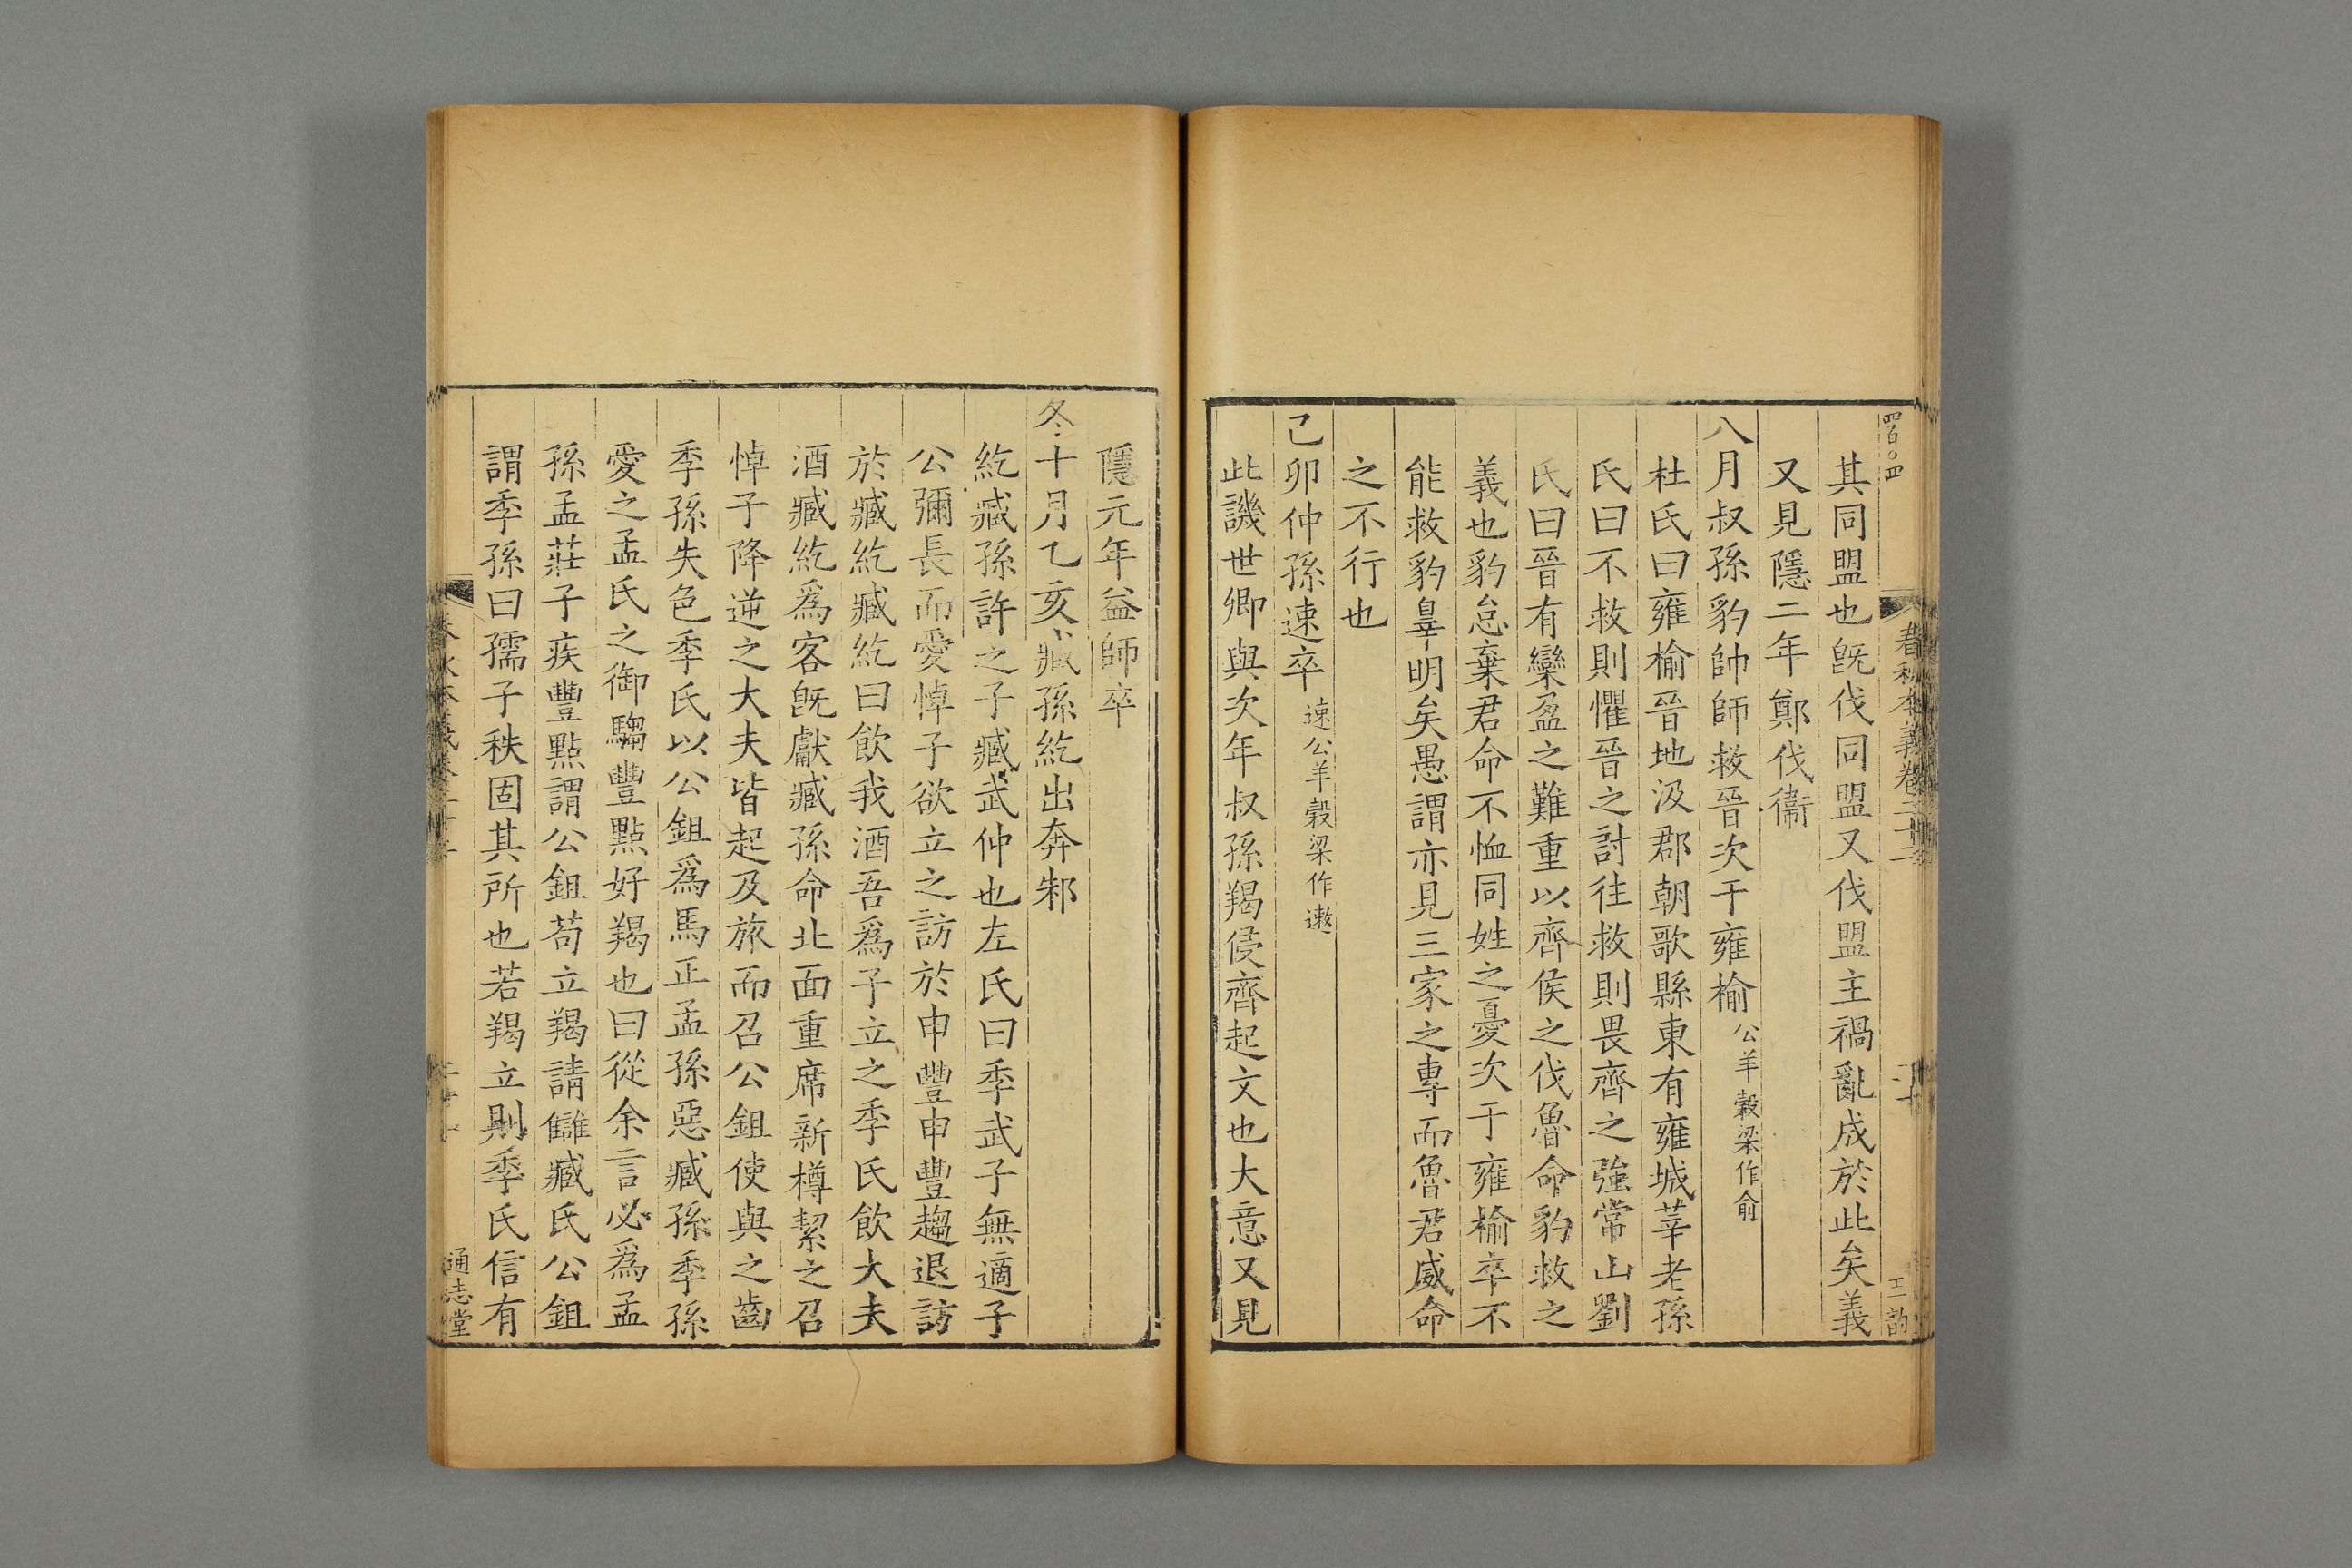 四百〇四
春秋本義卷二十二
其同盟也旣伐同盟又伐盟主禍亂成於此矣義
又見隱二年鄭伐衞
八月叔孫豹帥師救晉次于雍榆公羊穀梁作俞
杜氏曰雍榆晉地汲郡朝歌縣東有雍城莘老孫
氏曰不救則懼晉之討往救則畏齊之強常山劉
氏曰晉有欒盈之難重以齊侯之伐魯命豹救之
義也豹怠棄君命不恤同姓之憂次于雍榆卒不
能救豹辠明矣愚謂亦見三家之專而魯君威命
之不行也
己卯仲孫速卒速公羊穀梁作遬
此譏世卿與次年叔孫羯侵齊起文也大意又見
隱元年益師卒
冬十月乙亥臧孫紇出奔邾
紇臧孫許之子臧武仲也左氏曰季武子無適子
公彌長而愛悼子欲立之訪於申豐申豐趨退訪
於臧紇臧紇曰飲我酒吾爲子立之季氏飲大夫
酒臧紇爲客旣獻臧孫命北面重席新樽絜之召
悼子降逆之大夫皆起及旅而召公鉏使與之齒
季孫失色季氏以公鉏爲馬正孟孫惡臧孫季孫
愛之孟氏之御騶豐點好羯也曰從余言必爲孟
孫孟莊子疾豐點謂公鉏苟立羯請讎臧氏公鉏
謂季孫曰孺子秩固其所也若羯立則季氏信有
通志堂